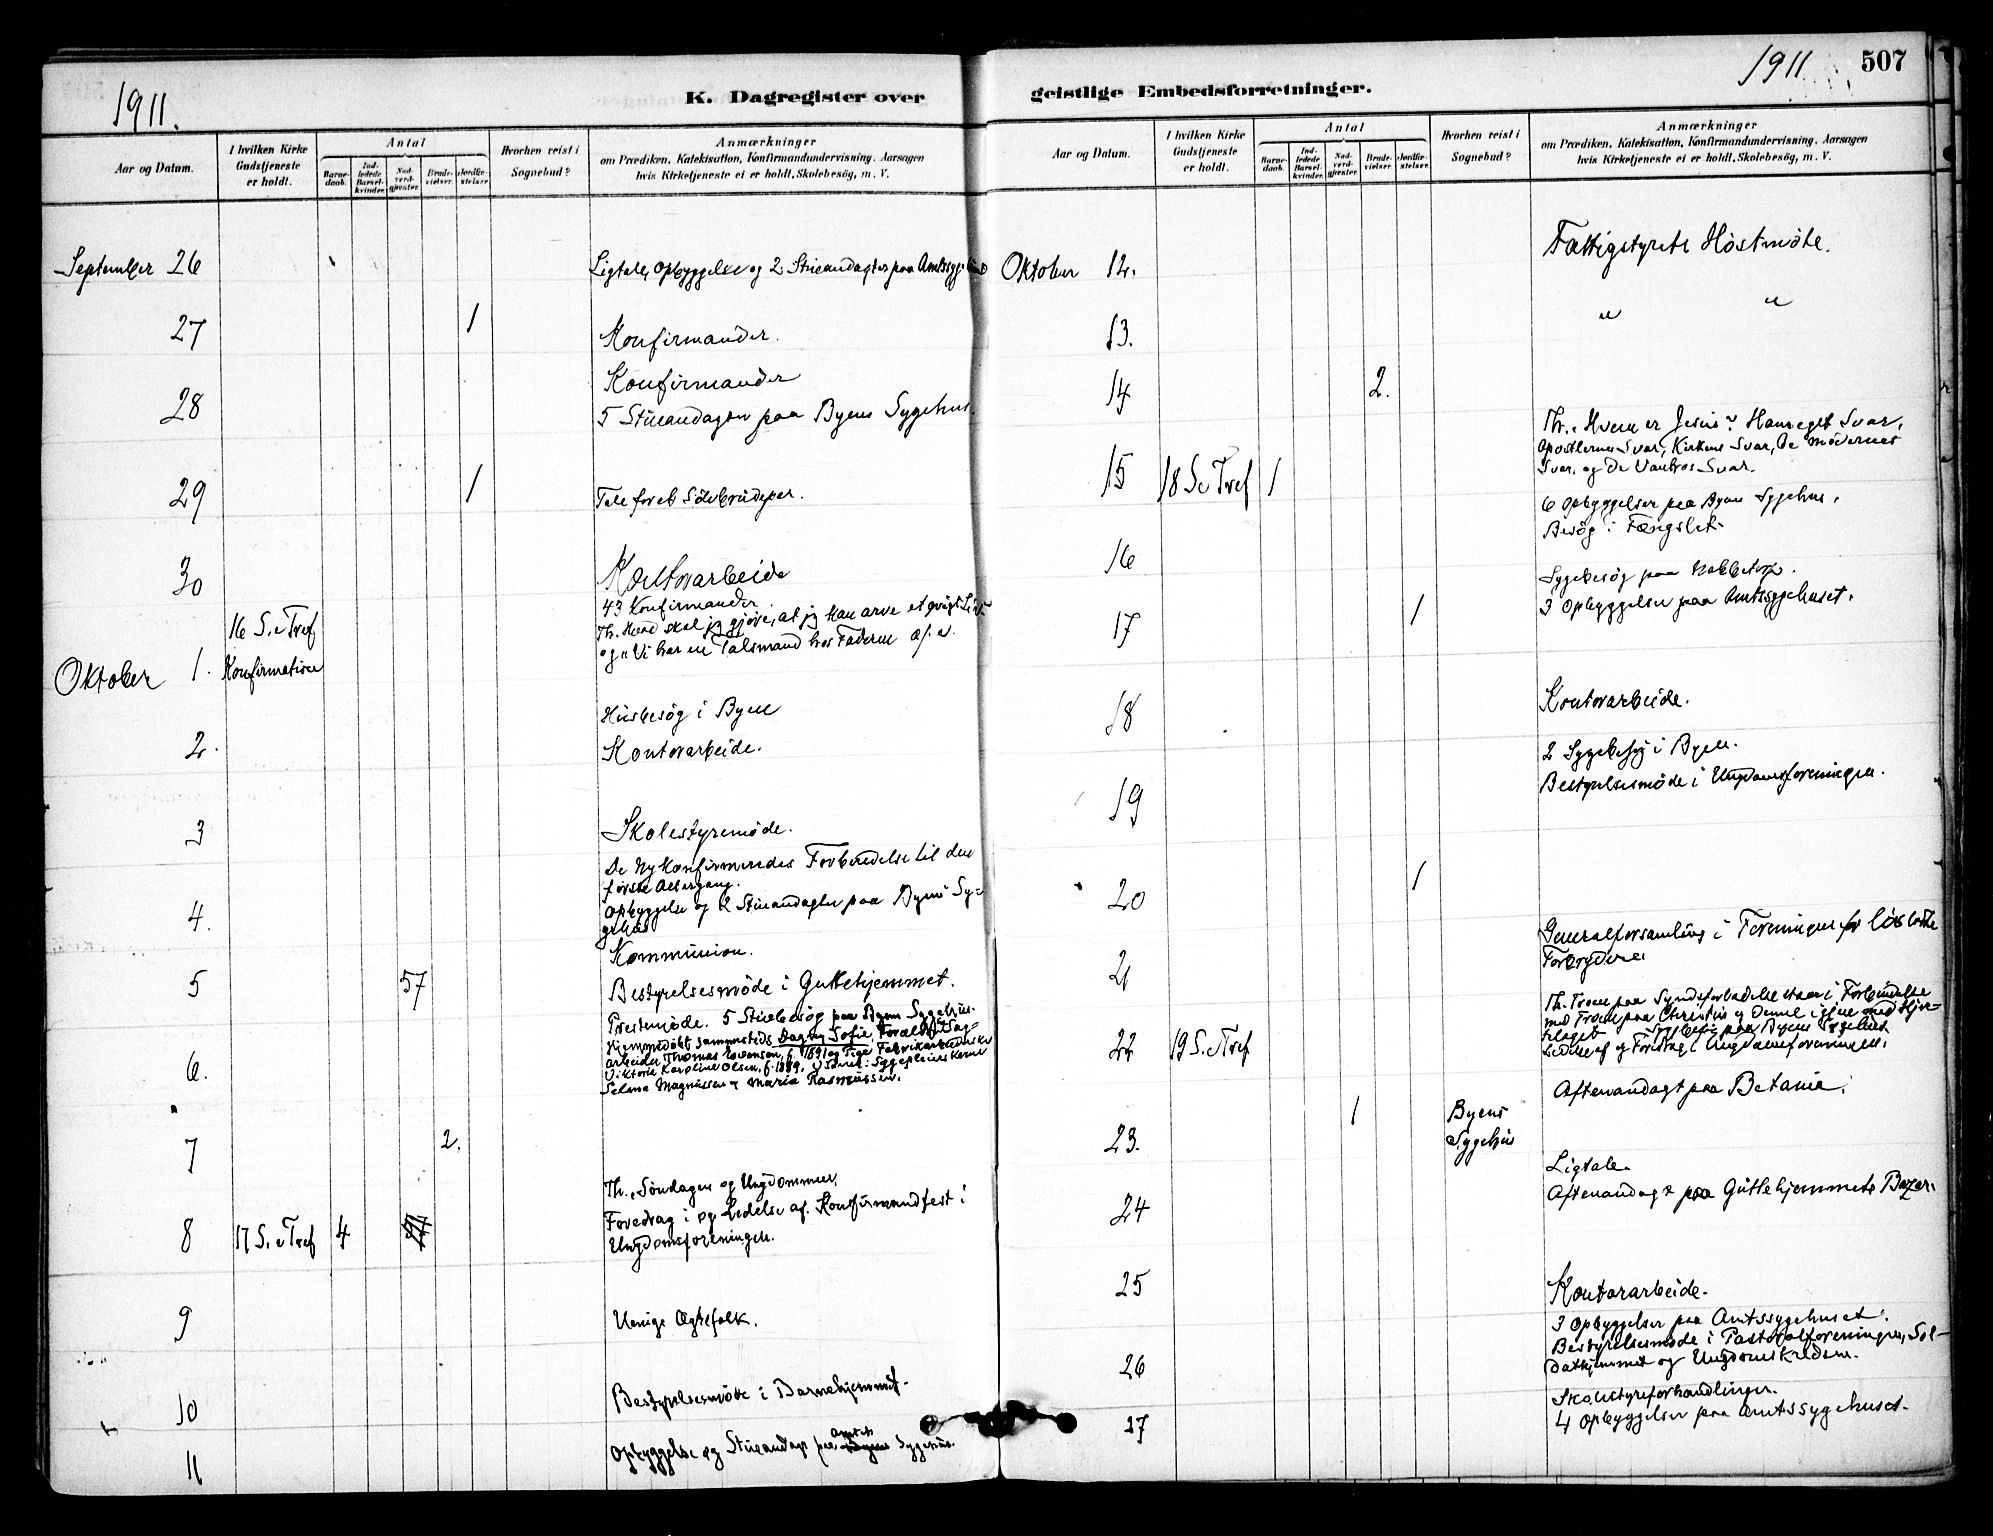 1911.
K. Dagregister over
Aar og Datum.
I hvilken Kirke Gudstjeneste er holdt.
Antal
Barnedaab.
Indledede Barselkvinder.
Nadverdgjæster.
Brudevielser.
Jordfæstelser
Hvorhen reist i Sognebud?
Anmærkninger
om Prædiken, Katekisation, Konfirmandundervisning, Aarsagen
hvis Kirketjeneste ei er holdt, Skolebesög, m. V.
September 26 Ligtale, Opbyggelse og 2 Stueandagter paa
27 1 Konfirmander.
28 Konfirmander
5 Stueandagter paa Byens Sygehus.
29 1 Tale for et Sölvbrudepar.
30 Kontorarbeide
43 Konfirmander.
16 S. e Tref Th. Hvad skal jeg gjøre, at jeg kan arve et evigt Liv
og "Vi har en Talsmand hos Faderen
Oktober 1. Konfirmation
Husbesøg i Byen
2. Kontorarbeide.
3 Skolestyremöde.
De Nykonfirmeredes Forberedelse til den
første Altergang.
4. Opbyggelse og 2 Stueandagter paa Byens Sy=
gehus
Kommunion.
5 57 Bestyrelsesmøde i Guttehjemmet.
Prestemøde. 5 Stuebesøg paa Byens Sygehus.
Hjemmedöbt sammesteds Dagny Sofie,
arbeider Thomas f. 1891 og Pige, Fabrikarbeiderske
6. Viktoria Karoline Olsen, f. 1889.
Selma Magnussen og Maria Rasmussen.
7 2.
Th. "Søndagen og Ungdommen"
8 17 S. e Tref 4 Foredrag i og Ledelse af Konfirmandfest i
Ungdomsforeningen.
9 Uenige Ægtefolk.
10 Bestyrelsesmöde i Barnehjemmet.
11 Opbyggelse og Stueandagt paa Amtets Sygehus.
1911 507
geistlige Embedsforretninger.
Aar og Datum.
I hvilken Kirke Gudstjeneste er holdt.
Antal
Barnedaab.
Indledede Barselkvinder.
Nadverdgjæster.
Brudevielser.
Jordfæstelser.
Hvorhen reist i Sognebud?
Anmærkninger
om Prædiken, Katekisation, Konfirmandundervisning, Aarsagen
hvis Kirketjeneste ei er holdt, Skolebesög, m. V.
Fattigstyrets Höstmöte.
Oktober 12.
13. " "
14 2.
Th. "Hvem er Jesus"? Hans eget Svar,
Apostlernes Svar, Kirkens Svar, De modernes
Svar, og De Vantros Svar.
15 18 S. e Tref 1 6 Opbyggelser paa Byens Sygehus.
Besøg i Fængslet.
16 Sygebesøg paa
3 Opbyggelser paa Amtssygehuset.
17 1
18 Kontorarbeide.
2 Sygebesøg i Byen.
Bestyrelsesmöde i Ungdomsforeningen.
19
20 1
Generalforsamling i Foreningen for løsladte
21 Forbrydere.
Th. Troen paa Syndsforladelse staar i Forbindelse
med Troen paa Christus og
Sygebesøg paa Byens Sygehus
22 19 S. e Tref Ledelse af og Foredrag i Ungdomsforeningen.
Aftenandagt paa Betania.
23. 1 Byens Sygehus
Ligtale.
24 Aftenandagt paa Guttehjemmets Bazar.
25 Kontorarbeide.
3 Opbyggelser paa Amtssygehuset.
Bestyrelsesmøde i Pastoralforeningen, Sol-
26 dathjemmet og Ungdomskredsen.
Skolestyreforhandlinger.
27 4 Opbyggelser paa Amtssygehuset.